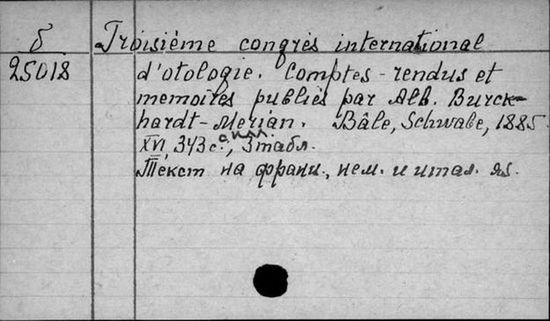 б Troisième congrès international
25018 d'otologie. Comptes-rendus et
memoires publiès par Alb. Burck-
hardt-Merian. Bâle, Schwabe, 1885
XVI, 343 с. с илл., 3 табл.
Текст на франц., нем. и итал. яз.